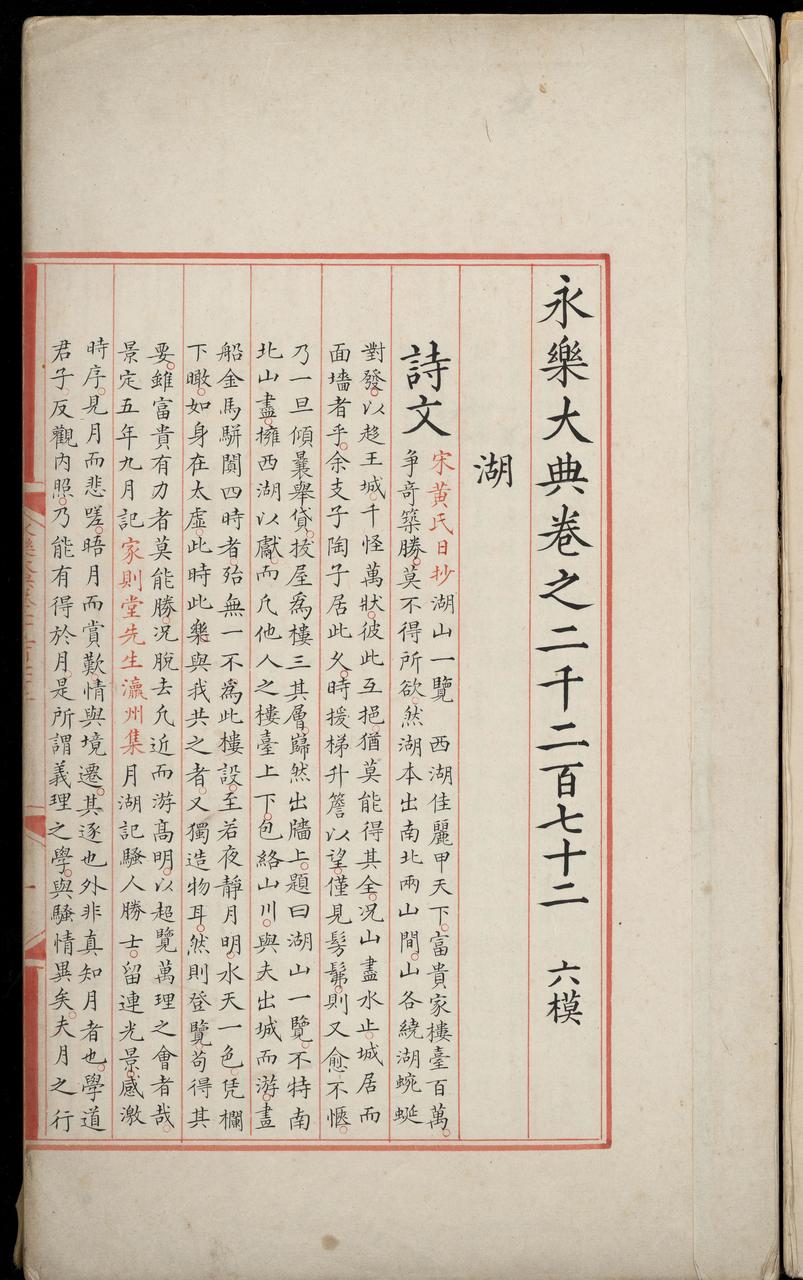 永樂大典卷之二千二百七十二　六模
湖
詩文
宋黄氏日抄湖山一覽　西湖佳麗甲天下富貴家樓臺百萬
争奇築勝莫不得所欲然湖本出南北兩山間山各繞湖蜿蜒
對發以趍王城千怪萬狀彼此互挹猶莫能得其全况山盡水止城居而
面墻者乎余支子陶子居此久時援梯升簷以望僅見髣髴則又愈不愜
乃一旦傾曩舉貸拔屋爲樓三其層巋然出牆上題曰湖山一覽不特南
北山盡擁西湖以獻而凢他人之樓臺上下包絡山川與夫出城而游畫
船金馬駢闐四時者殆無一不爲此樓設至若夜靜月明水天一色凭欄
下瞰如身在太虛此時此樂與我共之者又獨造物耳然則登覽苟得其
要雖富貴有力者莫能勝况脫去凢近而游髙明以超覽萬理之會者哉
景定五年九月記家則堂先生瀛州集月湖記騷人勝士留連光景感激
時序見月而悲嗟晤月而賞歎情與境遷其逐也外非真知月者也學道
君子反觀内照乃能有得於月是所謂義理之學與騷情異矣夫月之行